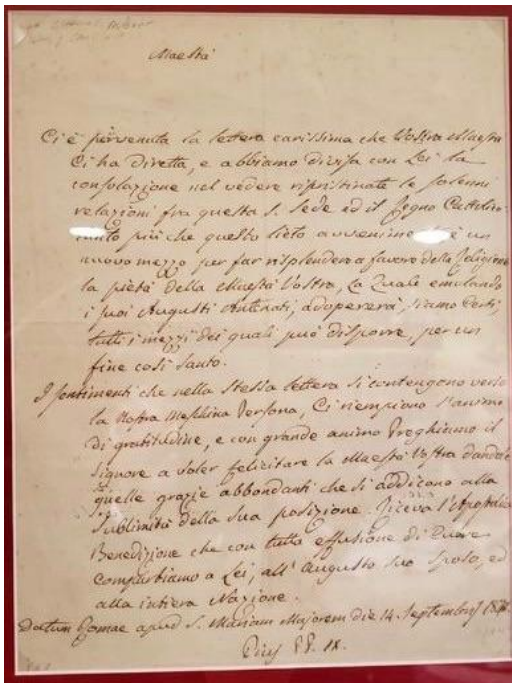 Maestà
Ci è pervenuta la lettera carissima che Vostra Maestà
Ci ha diretta, e abbiamo divisa con Lei la
consolazione nel vedere ripristinate le solenni
relazioni fra questa S. Sede ed il Regno Cattolico
tanto più che questo lieto avvenimento è un
nuovo mezzo per far risplendere a favore della Religione
la pietà della Maestà Vostra, la Quale emulando
i suoi Augusti Antenati, adopererà, siamo Certi,
tutti i mezzi dei quali può disporre, per un
fine così Santo.
I sentimenti che nella stessa lettera si contengono verso
la Nostra Meschina Persona, Ci riempiono l'animo
di gratitudine, e con grande animo Preghiamo il
Signore a voler felicitare la Maestà Vostra dandole
quelle grazie abbondanti che si addicono alla
sublimità della Sua posizione. Riceva l'Apostolica
Benedizione che con tutta effusione di Cuore
compartiamo a Lei, all' Augusto suo Sposo, ed
alla intiera Nazione.
Datum Romae apud S. Mariam Majorem die 14. Septembris
Pius PP. IX.